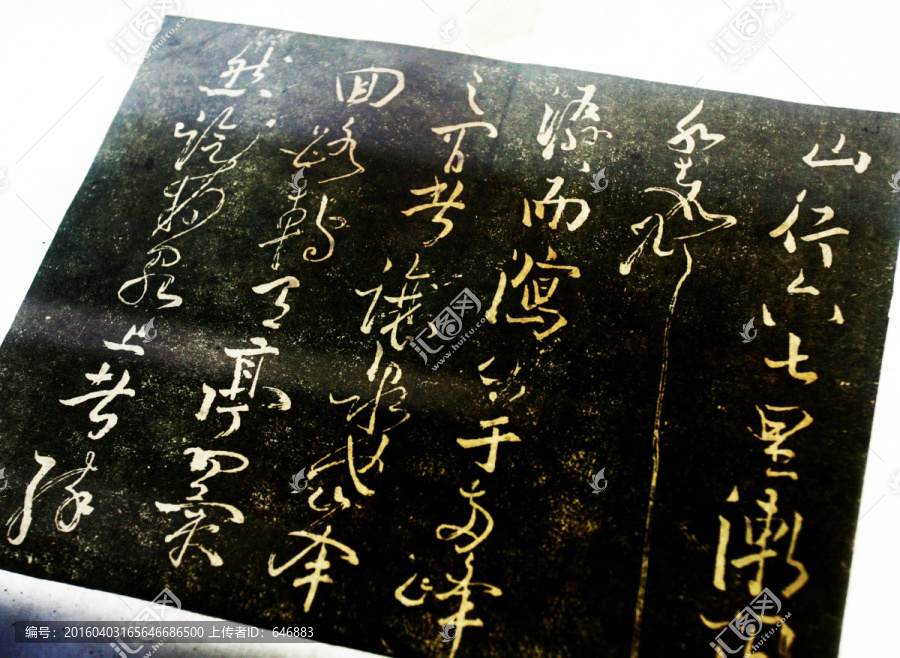 山行六七里漸聞
水聲
潺潺而瀉出于兩峰
之間者讓泉也峯
回路轉有亭翼
然臨於泉上者醉
编号：20160403165646686500 上传者ID：646883
汇图网
www.huitu.com